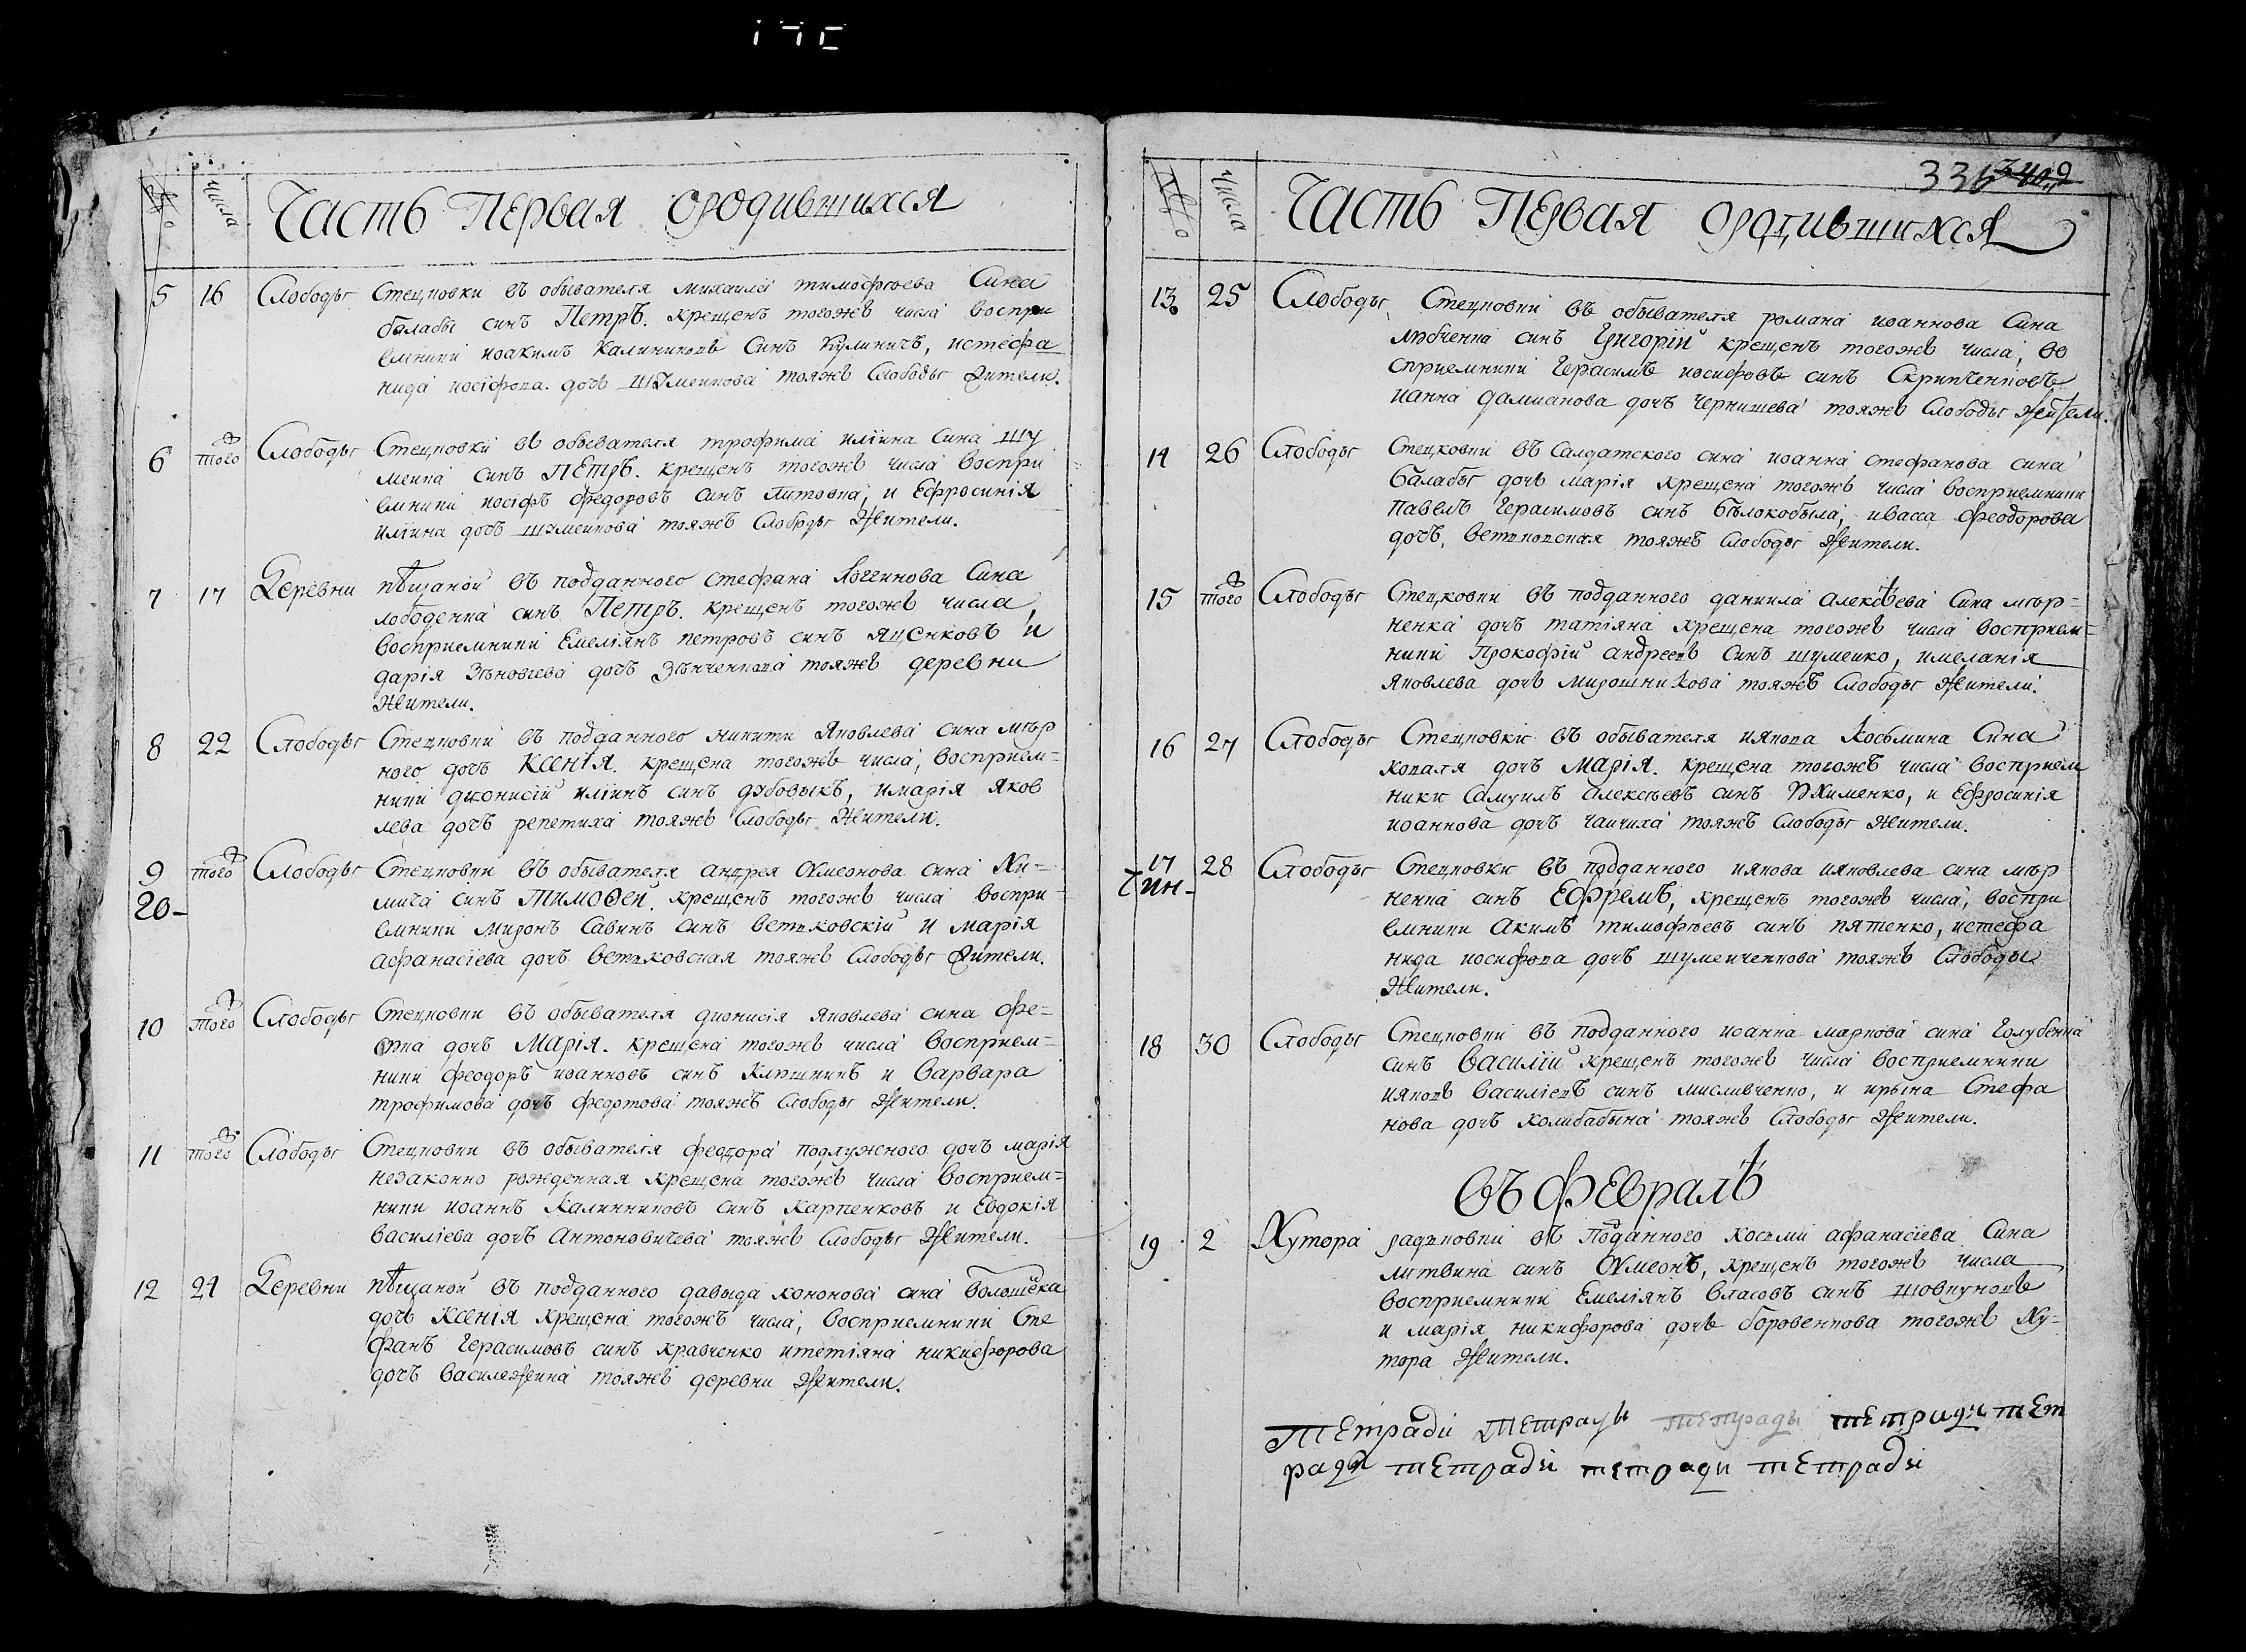 №
числа
Часть Первая ородившихся
5 16 Слободы Стецковки въ обывателя михаила тимофѣева Сина
балабы синъ Петръ. крещенъ тогожъ числа воспри
емники иоакимъ Калиниковъ Синъ Кулиничъ, истефа
нида иосифова дочь шуменкова тояжъ Слободы Жители.
6 того Слободы Стецковки въ обывателя трофима иліина Сина шу
менка синъ ПЕтръ. крещенъ тогожъ числа воспри
емники иосіфъ федоровъ синъ литовка, и Ефросинія
иліина дочъ шуменкова тояжъ Слободы Жители.
7 17 Деревни пѣщаной въ подданного стефана логгинова Сина
лободенка синъ Петръ. крещенъ тогожъ числа,
восприемники Емеліянъ петровъ синъ яценковъ и
дарія Зѣновіева дочъ Зѣнченкова тояжъ деревни
Жители.
8 22 Слободы Стецковки въ подданного никити Яковлева сина мѣр
ного дочъ Ксенія. крещена тогожъ числа, восприем-
ники дионисій иліинъ синъ дубовыкъ, имарія яков
лева дочъ репетиха тояжъ Слободы Жители.
9 того Слободы Стецковки въ обывателя андрея Симеонова сина Хи-
20- мича синъ Тимоѳей. крещенъ тогожъ числа воспри-
емники миронъ Савинъ Синъ ветиковскій и марія
афанасіева дочъ ветиковская тояжъ Слободы Жители.
10 того Слободы Стецковки въ обывателя дионисія яковлева сина фе-
дочъ Марія. крещена тогожъ числа восприем-
ники феодоръ иоанновъ синъ и варвара
трофимова дочъ федотова тояжъ Слободы Жители.
11 того Слободы Стецковки въ обывателя феодора подлужного дочъ марія
незаконно рожденная крещена тогожъ числа восприем-
ники иоаннъ Калинниковъ синъ Карпенковъ и Евдокія
василіева дочъ Антоновичева тояжъ Слободы Жители.
12 24 Деревни пѣщаной въ подданного давыда кононова сина волошека
дочъ Ксенія крещена тогожъ числа, восприемники Сте
фанъ Герасимовъ синъ кравченко итетіяна никифорова
дочъ василежина тояжъ деревни Жители.
336 340
№
числа
Часть Первая ородившихся
13 25 Слободы Стецковки въ обывателя романа иоаннова Сина
любченка синъ Григорій крещенъ тогожъ числа, во
сприемники Герасимъ иосифовъ синъ Скрипченковъ
ианна даміанова дочъ Чернишева тояжъ Слободы Жители.
14 26 Слободы Стецковки въ Салдатского сина иоанна стефанова сина
балабы дочъ марія крещена тогожъ числа восприемники
павелъ Герасимовъ синъ бѣлокобыла, ивасса феодорова
дочъ, ветиковская тояжъ Слободы Жители.
15 того Слободы Стецковки въ подданного даніила алексѣева Сина мѣр-
ненка дочъ татіяна крещена тогожъ числа восприем-
ники Прокофій андреевъ Синъ шуменко, имеланія
Яковлева дочъ мирошникова тояжъ Слободы Жители.
16 27 Слободы Стецковки въ обывателя иякова Косьмина Сина
коваля дочъ Марія. крещена тогожъ числа восприем
ники Самуилъ алексѣевъ синъ Юхименко, и Ефросинія
иоаннова дочъ чаичиха тояжъ Слободы Жители.
17 28 Слободы Стецковки въ подданного иякова ияковлева сина мѣр
ненка синъ ЕФремъ, крещенъ тогожъ числа, воспри
емники акимъ тимофѣевъ синъ пятенко, истефа
нида иосифова дочъ шуменченкова тояжъ Слободы
Жители.
18 30 Слободы Стецковки въ подданного иоанна маркова сина Голубенка
синъ василій крещенъ тогожъ числа восприемники
ияковъ василіевъ синъ мисливченко, и ирына Стефа
нова дочъ колибабына тояжъ Слободы Жители.
въ ФЕвралѣ
19 2 Хутора радковки въ Поданного косьми афанасіева Сина
литвина синъ Симеонъ, крещенъ тогожъ числа
восприемники Емеліянъ власовъ синъ шовкуновъ
и марія никифорова дочъ боровенкова тогожъ Ху-
тора Жители.
ТЕтради ТЕтрадь тетрадь тетради тЕт
ради тЕтради тетради тЕтради